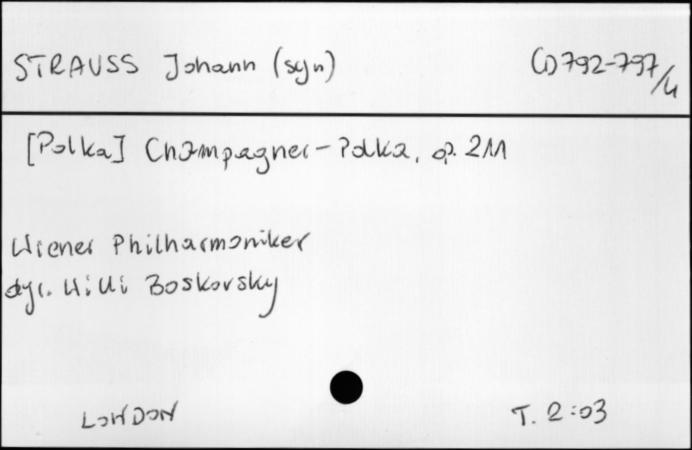 STRAUSS Johann (syn) (i) 792-797/4
[Polka] Champagner-Polka, op. 211
Wiener Philharmoniker
dyr. Willi Boskovsky
LONDON T. 2:03